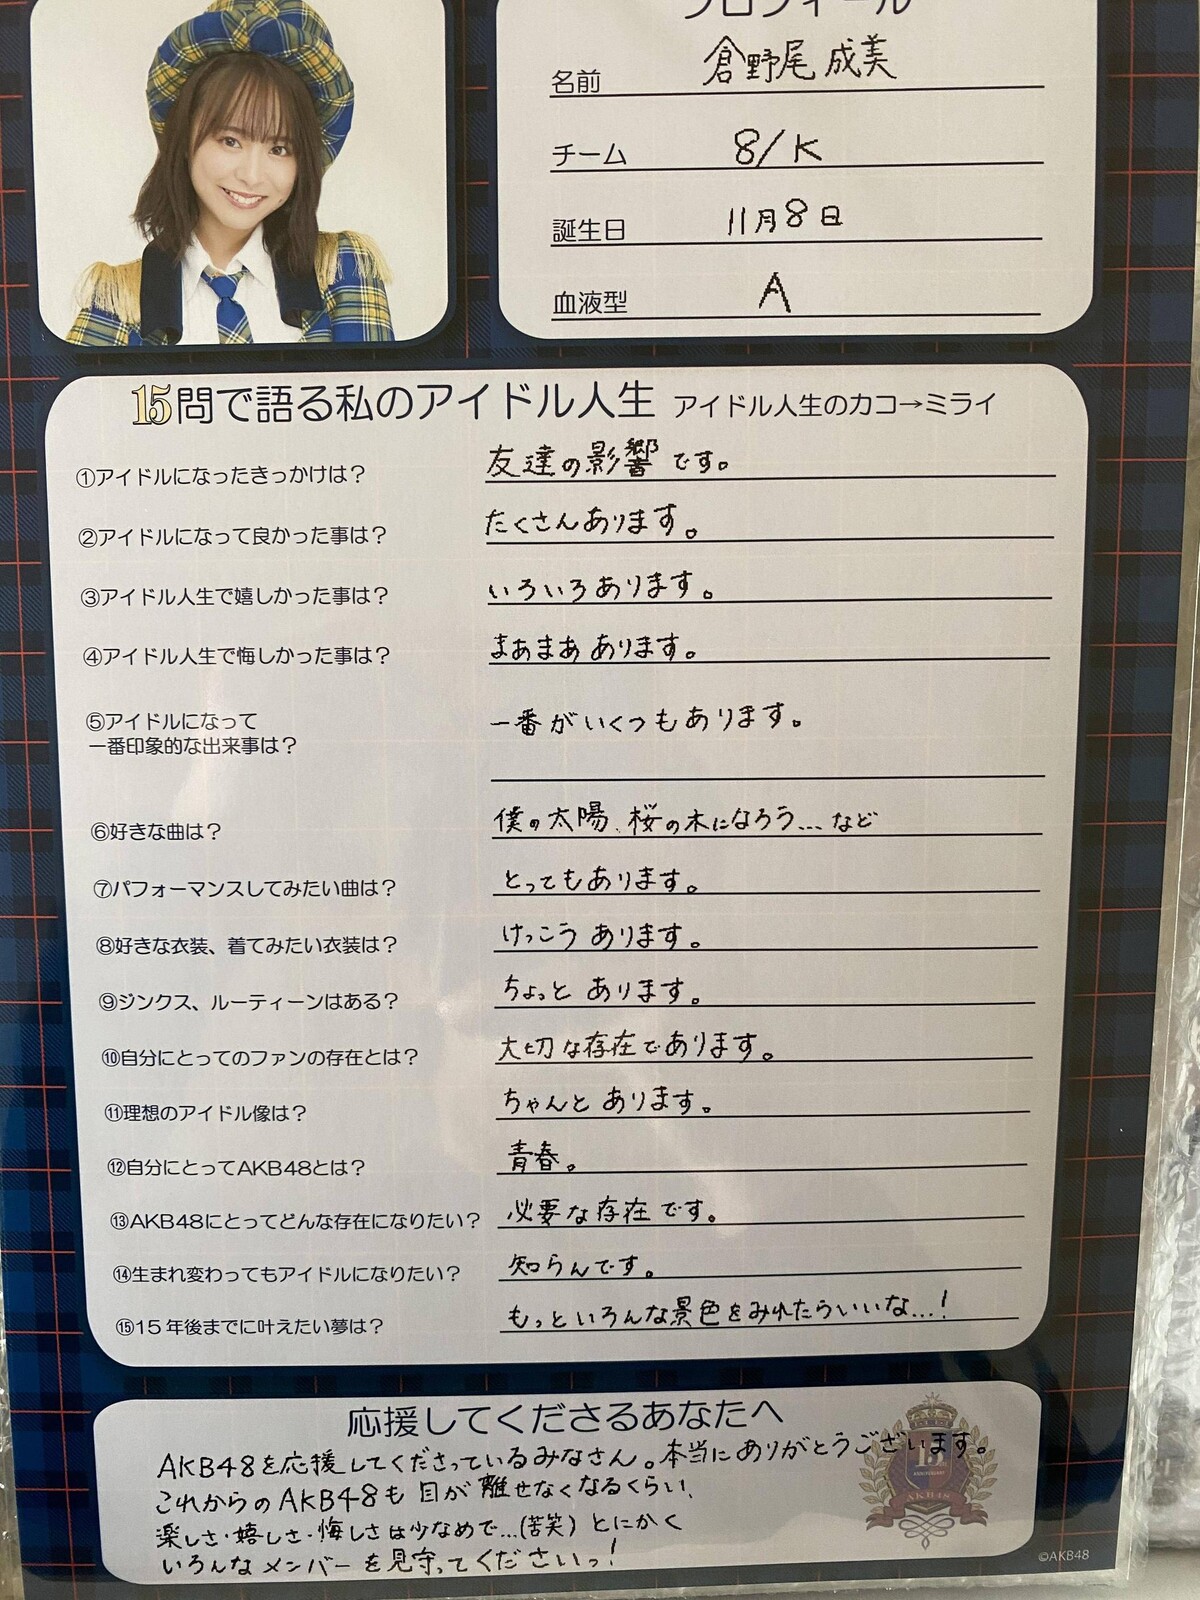 プロフィール
名前 倉野尾 成美
チーム 8/K
誕生日 11月8日
血液型 A
15問で語る私のアイドル人生 アイドル人生のカコ→ミライ
①アイドルになったきっかけは? 友達の影響です。
②アイドルになって良かった事は? たくさんあります。
③アイドル人生で嬉しかった事は? いろいろあります。
④アイドル人生で悔しかった事は? まあまああります。
⑤アイドルになって
一番印象的な出来事は? 一番がいくつもあります。
⑥好きな曲は? 僕の太陽、桜の木になろう...など
⑦パフォーマンスしてみたい曲は? とってもあります。
⑧好きな衣装、着てみたい衣装は? けっこうあります。
⑨ジンクス、ルーティーンはある? ちょっとあります。
⑩自分にとってのファンの存在とは? 大切な存在であります。
⑪理想のアイドル像は? ちゃんとあります。
⑫自分にとってAKB48とは? 青春。
⑬AKB48にとってどんな存在になりたい? 必要な存在です。
⑭生まれ変わってもアイドルになりたい? 知らんです。
⑮15年後までに叶えたい夢は? もっといろんな景色をみれたらいいな...!
応援してくださるあなたへ
AKB48を応援してくださっているみなさん。本当にありがとうございます。
これからのAKB48も目が離せなくなるくらい、
楽しさ・嬉しさ・悔しさは少なめで...(苦笑)とにかく
いろんなメンバーを見守ってくださいっ!
15
ANNIVERSARY
AKB48
©AKB48